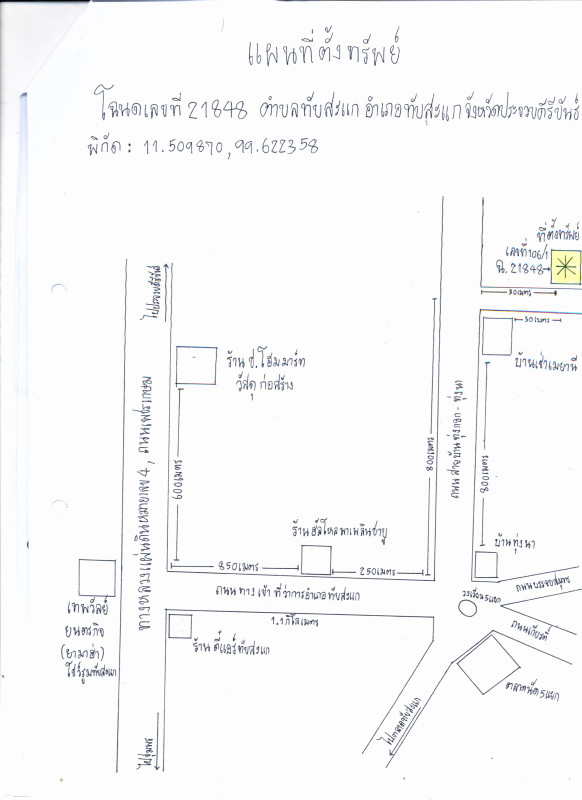 แผนที่ตั้งทรัพย์
โฉนดเลขที่ 21848 ตำบลทับสะแก อำเภอทับสะแก จังหวัดประจวบคีรีขันธ์
พิกัด : 11.509870,99.622358
ที่ตั้งทรัพย์
เลขที่106/1
ฉ. 21848
30เมตร
30เมตร
บ้านเช่าเมยานี
ไปประจวบคีรีขันธ์
ร้าน ช.โฮมมาร์ท
วัสดุ ก่อสร้าง
600เมตร
ทางหลวงแผ่นดินหมายเลข 4, ถนนเพชรเกษม
800เมตร
ถนน สายบ้านทุ่งกอก - ทุ่งนา
800เมตร
บ้านทุ่งนา
850เมตร
250เมตร
ถนน ทาง เข้า ที่ว่าการอำเภอ ทับสะแก
1.1กิโลเมตร
วงเวียน 5แยก
ถนนเกียรติ์
ตลาดนัด 5แยก
ไปตลาดทับสะแก
เทพวัลย์
ยนตรกิจ
(ยามาฮ่า)
โชว์รูมทับสะแก
ร้าน ดีแอร์ ทับสะแก
ไปชุมพร